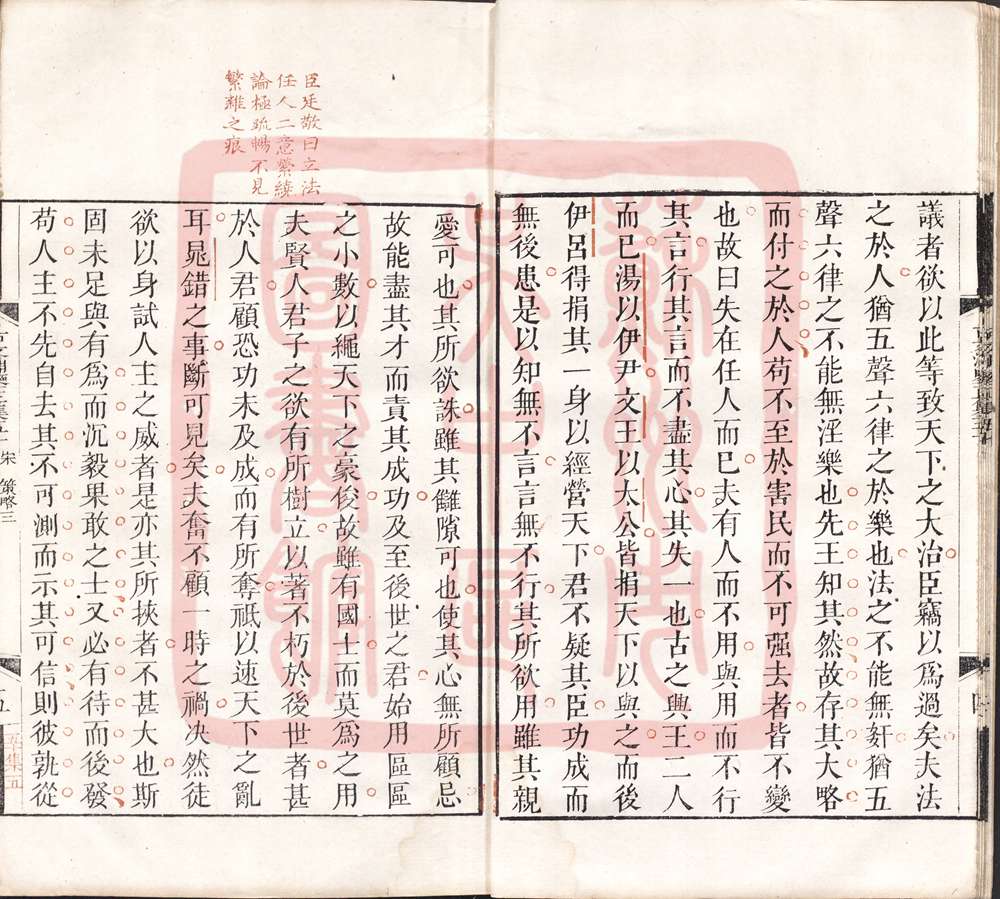 議者欲以此等致天下之大治臣竊以爲過矣夫法
之於人猶五聲六律之於樂也法之不能無姧猶五
聲六律之不能無淫樂也先王知其然故存其大略
而付之於人苟不至於害民而不可强去者皆不變
也故曰失在任人而已夫有人而不用與用而不行
其言行其言而不盡其心其失一也古之興王二人
而已湯以伊尹文王以太公皆捐天下以與之而後
伊呂得捐其一身以經營天下君不疑其臣功成而
無後患是以知無不言言無不行其所欲用雖其親
臣廷敬曰立法
任人二意縈繞
論極疏暢不見
繁雜之痕
愛可也其所欲誅雖其讎隙可也使其心無所顧忌
故能盡其才而責其成功及至後世之君始用區區
之小數以繩天下之豪俊故雖有國士而莫爲之用
夫賢人君子之欲有所樹立以著不朽於後世者甚
於人君顧恐功未及成而有所奪祇以速天下之亂
耳晁錯之事斷可見矣夫奮不顧一時之禍决然徒
欲以身試人主之威者是亦其所挾者不甚大也斯
固未足與有爲而沉毅果敢之士又必有待而後發
苟人主不先自去其不可測而示其可信則彼孰從
宋 策略三